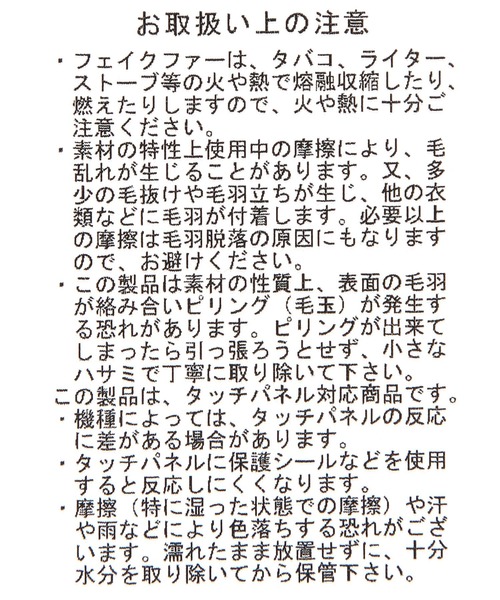 お取扱い上の注意
・フェイクファーは、タバコ、ライター、
ストーブ等の火や熱で熔融収縮したり、
燃えたりしますので、火や熱に十分ご
注意ください。
・素材の特性上使用中の摩擦により、毛
乱れが生じることがあります。又、多
少の毛抜けや毛羽立ちが生じ、他の衣
類などに毛羽が付着します。必要以上
の摩擦は毛羽脱落の原因にもなります
ので、お避けください。
・この製品は素材の性質上、表面の毛羽
が絡み合いピリング（毛玉）が発生す
る恐れがあります。ピリングが出来て
しまったら引っ張ろうとせず、小さな
ハサミで丁寧に取り除いて下さい。
この製品は、タッチパネル対応商品です。
・機種によっては、タッチパネルの反応
に差がある場合があります。
・タッチパネルに保護シールなどを使用
すると反応しにくくなります。
・摩擦（特に湿った状態での摩擦）や汗
や雨などにより色落ちする恐れがござ
います。濡れたまま放置せずに、十分
水分を取り除いてから保管下さい。